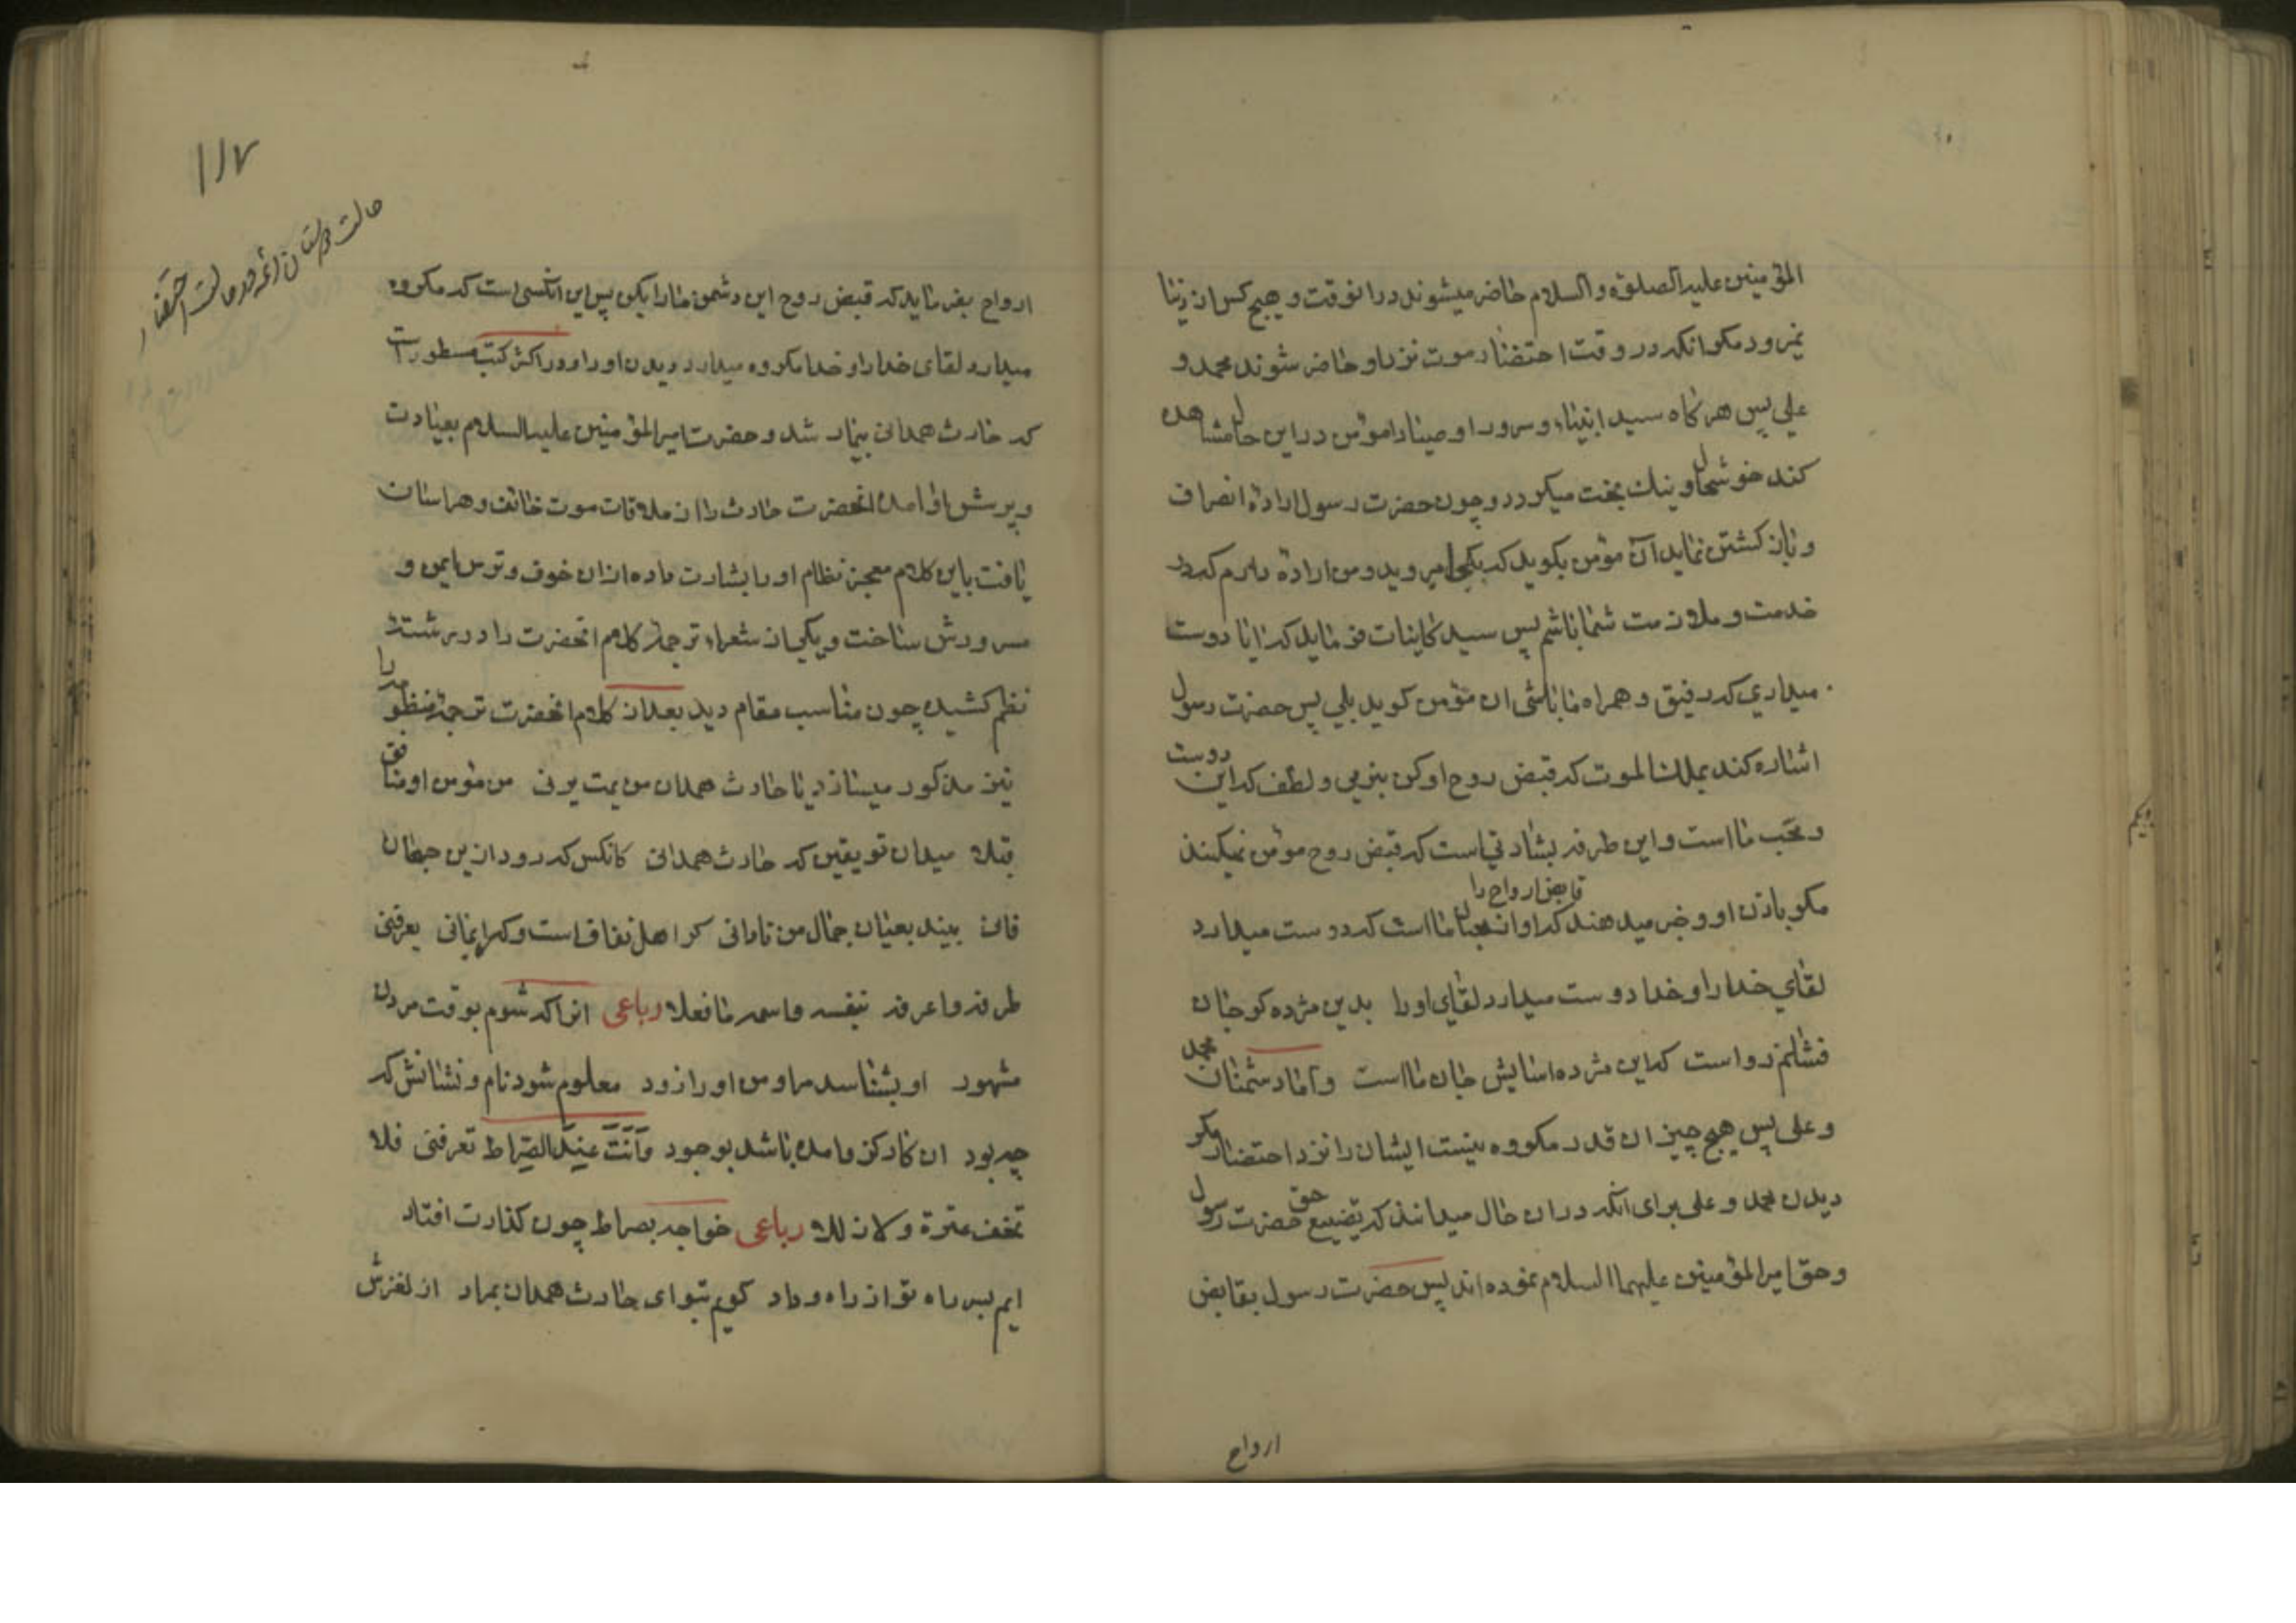 المؤمنین علیه الصلوة و السلام حاضر میشوند در انوقت و هیچ کس از دنیا
نمیرود مکر انکه در وقت احتضار موت نزد او حاضر شوند محمد و
علی پس هرکاه سید انبیاء و سرور اوصیا را مؤمن در این حال مشاهده
کند خوشحال و نیک بخت میکردد و چون حضرت رسول اراده انصراف
و باز کشتن نماید آن مؤمن بکوید که بکجا میروید و من اراده دارم که در
خدمت و ملازمت شما باشم پس سید کاینات فرماید که ایا دوست
میداری که رفیق و همراه ما باشی ان مؤمن کوید بلی پس حضرت رسول
اشاره کند بملک الموت که قبض روح او کن بنرمی و لطف که این دوست
و محب ما است و این طرفه بشارتی است که قبض روح مؤمن نمیکنند
مکر باذن او و خبر میدهند قابض ارواح را که او از محبان ما است که دوست میدارد
لقای خدا را و خدا دوست میدارد لقای او را بدین مژده کر جان
فشانم رواست که این مژده اسایش جان ما است و اما دشمنان محمد
و علی پس هیچ چیز ان قدر مکروه نیست ایشان را نزد احتضار مکر
دیدن محمد و علی برای انکه در ان حال میدانند که تضییع حق حضرت رسول
و حق امیر المؤمنین علیهما السلام نموده اند پس حضرت رسول بقابض
ارواح
۱۱۷
حالت دوستان ائمه در حالت احتضار
ارواح بفرماید که قبض روح این دشمن ما را بکن پس این انکسی است که مکروه
میدارد لقای خدا را و خدا مکروه میدارد دیدن او را و در اکثر کتب مسطور است
که حارث همدانی بیمار شد و حضرت امیر المؤمنین علیه السلام بعیادت
و پرسش او امده انحضرت حارث را از ملاقات موت خائف و هراسان
یافت باین کلام معجز نظام او را بشارت داده از ان خوف و ترس ایمن و
مسرورش ساخت و یکی از شعراء ترجمه کلام انحضرت را در رشته
نظم کشیده چون مناسب مقام دید بعد از کلام انحضرت ترجمه منظومه را
نیز مذکور میسازد یا حارث همدان من یمت یرنی من مؤمن او منافق
قبلا میدان تو یقین که حارث همدانی کانکس که رود ازین جهان
فانی بیند بعیان جمال من تا دانی کر اهل نفاق است و کر ایمانی یعرفنی
طرفه و اعرفه بنفسه و اسمه ما فعلا رباعی انرا که شوم بوقت مردن
مشهور او بشناسد مرا و من او را زود معلوم شود نام و نشانش که
چه بود ان کار کز و امده باشد بوجود وَأنتَ عِندَ الصِّراط تعرفنی فلا
تخف عثرة ولا زللا رباعی خواجه بصراط چون کذارت افتاد
ایم بسر راه تو از راه وداد کویم بتو ای حارث همدان بمراد از لغزش